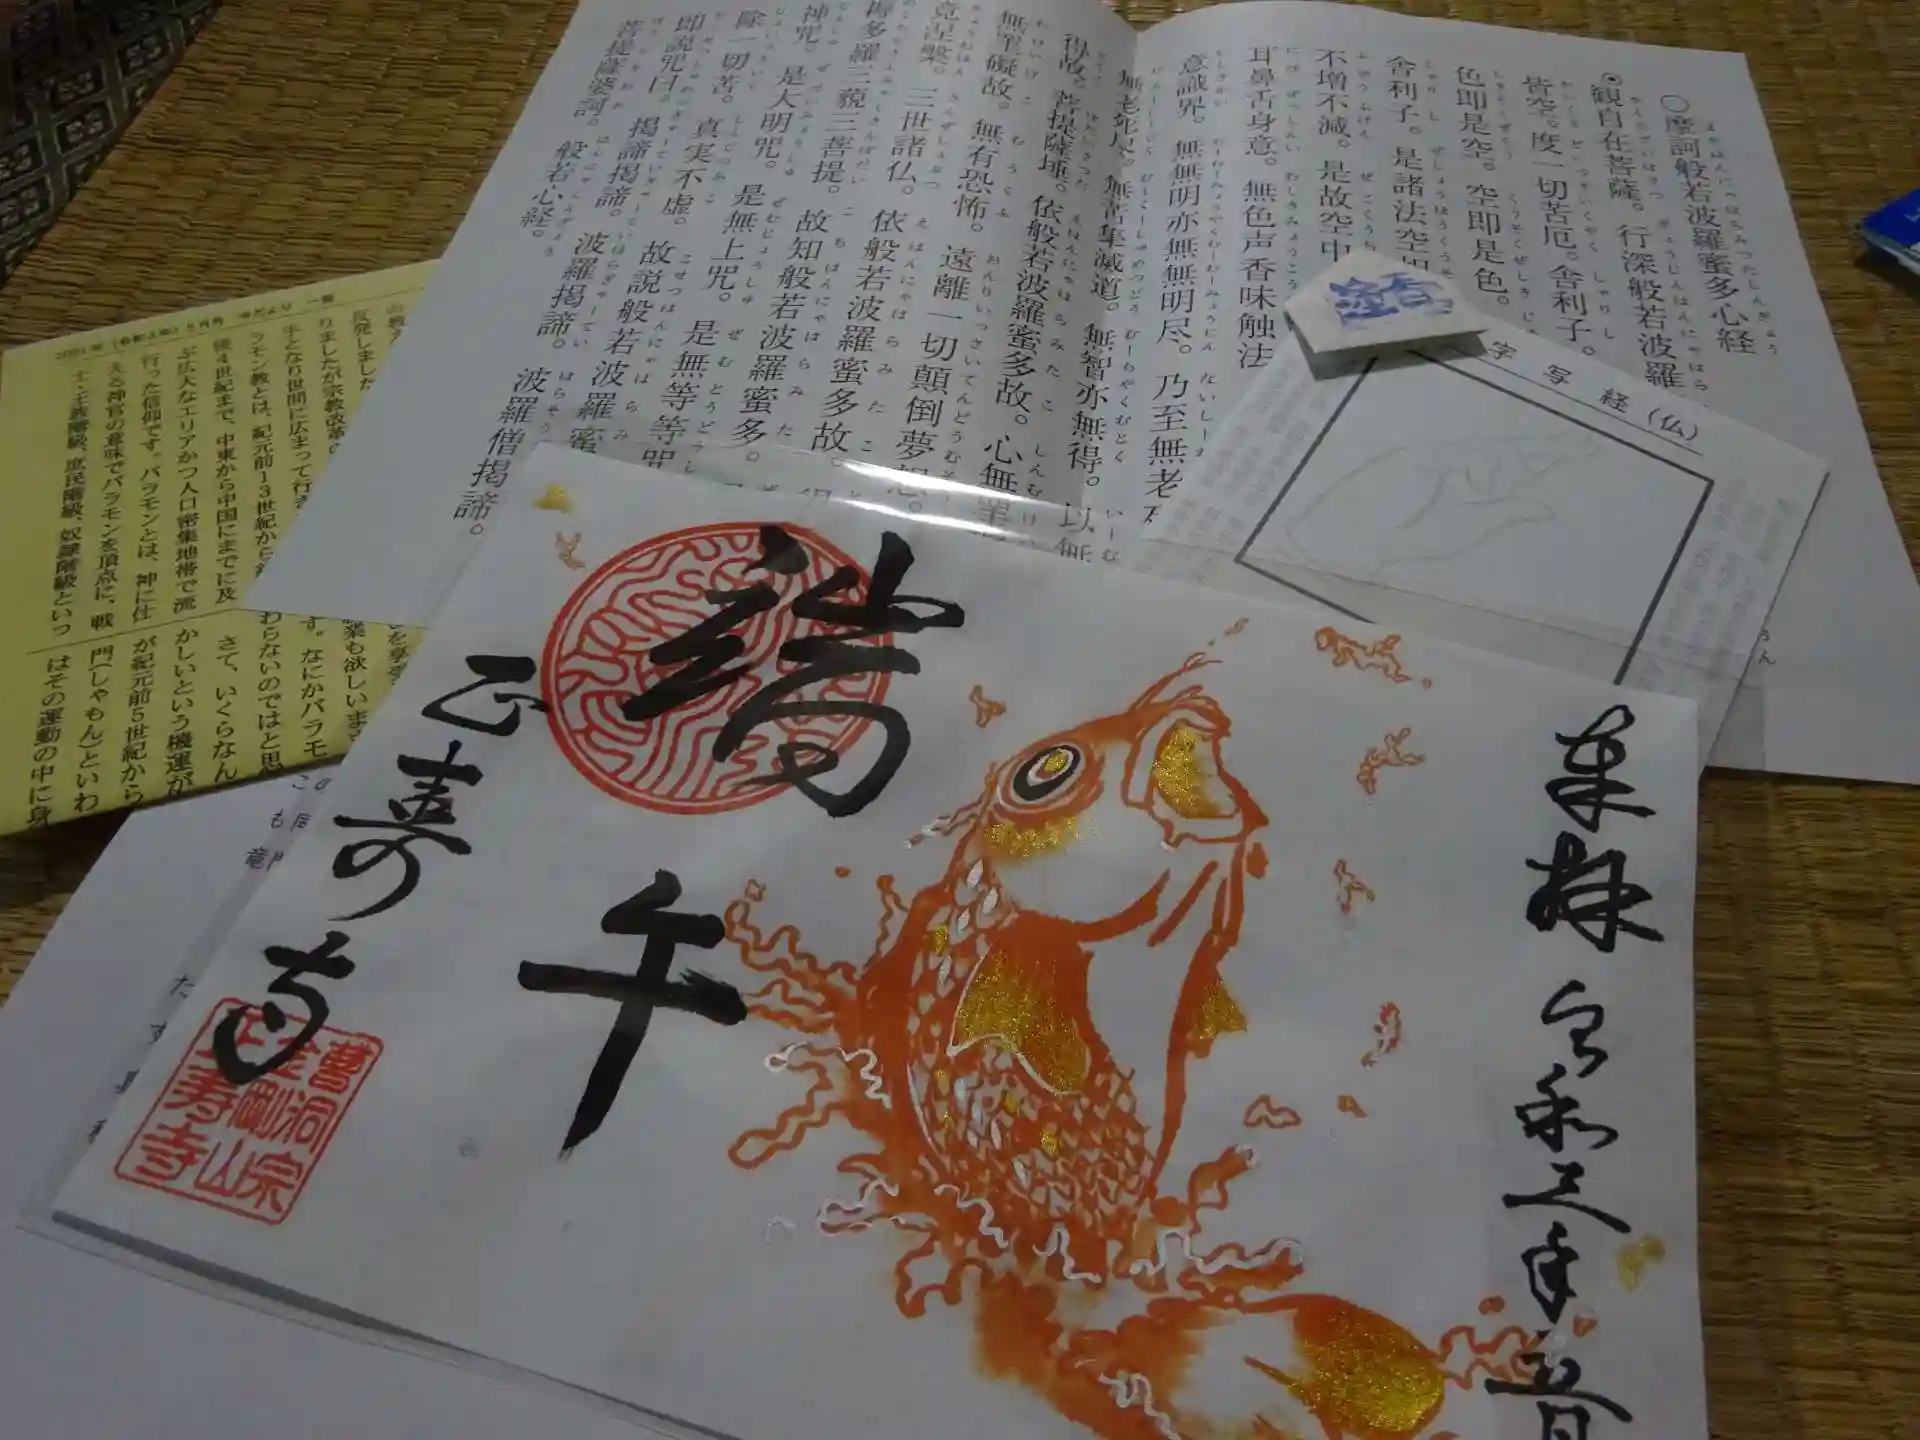 〇摩訶般若波羅蜜多心経
◉観自在菩薩。行深般若波羅
皆空。度一切苦厄。舎利子。
色即是空。空即是色。
舎利子。是諸法空相
不増不減。是故空中
耳鼻舌身意。無色声香味触法
意識界。無無明亦無無明尽。乃至無老
無老死尽。無苦集滅道。無智亦無得。以無
得故。菩提薩埵。依般若波羅蜜多故。心無罣
無罣礙故。無有恐怖。遠離一切顛倒夢想。
竟涅槃。三世諸仏。依般若波羅蜜多故。
得多羅三藐三菩提。故知般若波羅蜜多。
神咒。是大明咒。是無上咒。是無等等咒
除一切苦。真実不虚。故説般若波羅蜜
即説咒曰。掲諦掲諦。波羅掲諦。波羅僧掲諦。
菩提薩婆訶。般若心経。
香塗
字写経(仏)
反発しました
りましたが宗教改革の
手となり世間に広まって行き
ラモン教とは、紀元前13世紀から
後4世紀まで、中東から中国にまでに及
ぶ広大なエリアかつ人口密集地帯で流
行った信仰です。バラモンとは、神に仕
える神官の意味でバラモンを頂点に、戦
士・王族階級、庶民階級、奴隷階級といっ
業も欲しいま
す。なにかバラモ
わらないのではと思
さて、いくらなん
かしいという機運が
が紀元前5世紀から
門(しゃもん)といわ
はその運動の中に身
奉拝
令和三年五月
端午
正寿寺
曹洞宗
金剛山
正寿寺